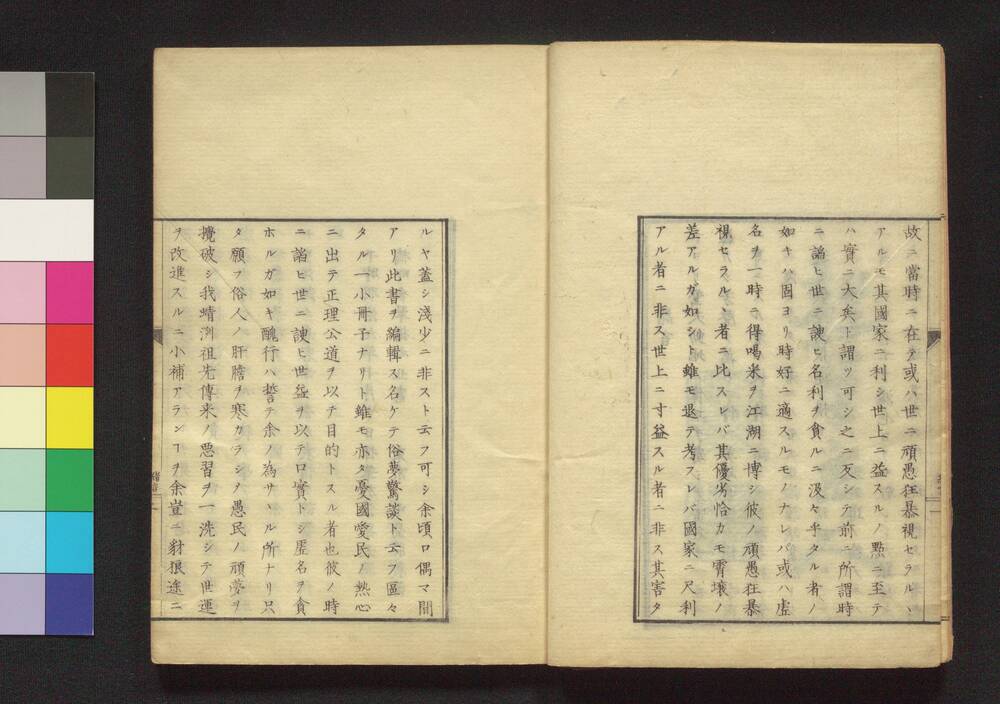 故ニ當時ニ在テ或ハ世ニ頑愚狂暴視セラルヽ
アルモ其國家ニ利シ世上ニ益スルノ點ニ至テ
ハ實ニ大矣ト謂ツ可シ之ニ反シテ前ニ所謂時
ニ謟ヒ世ニ諛ヒ名利ヲ貪ルニ汲々乎タル者ノ
如キハ固ヨリ時好ニ適スルモノナレバ或ハ虚
名ヲ一時ニ得喝采ヲ江湖ニ博シ彼ノ頑愚狂暴
視セラルヽ者ニ比スレバ其優劣恰カモ霄壌ノ
差アルガ如シト雖モ退テ考フレバ國家ニ尺利
アル者ニ非ス世上ニ寸益スル者ニ非ス其害タ
ルヤ葢シ淺少ニ非スト云フ可シ余頃ロ偶マ閒
アリ此書ヲ編輯ス名ケテ俗夢驚談ト云フ區々
タル一小冊子ナリト雖モ亦タ憂國愛民ノ熱心
ニ出テ正理公道ヲ以テ目的トスル者也彼ノ時
ニ謟ヒ世ニ諛ヒ世益ヲ以テ口實トシ虚名ヲ貪
ホルガ如キ醜行ハ誓テ余ノ為サヽル所ナリ只
タ願フ俗人ノ肝膽ヲ寒カラシメ愚民ノ頑夢ヲ
攪破シ我蜻洲祖先傳来ノ惡習ヲ一洗シテ世運
ヲ改進スルニ小補アランヿヲ余豈ニ豺狼途ニ